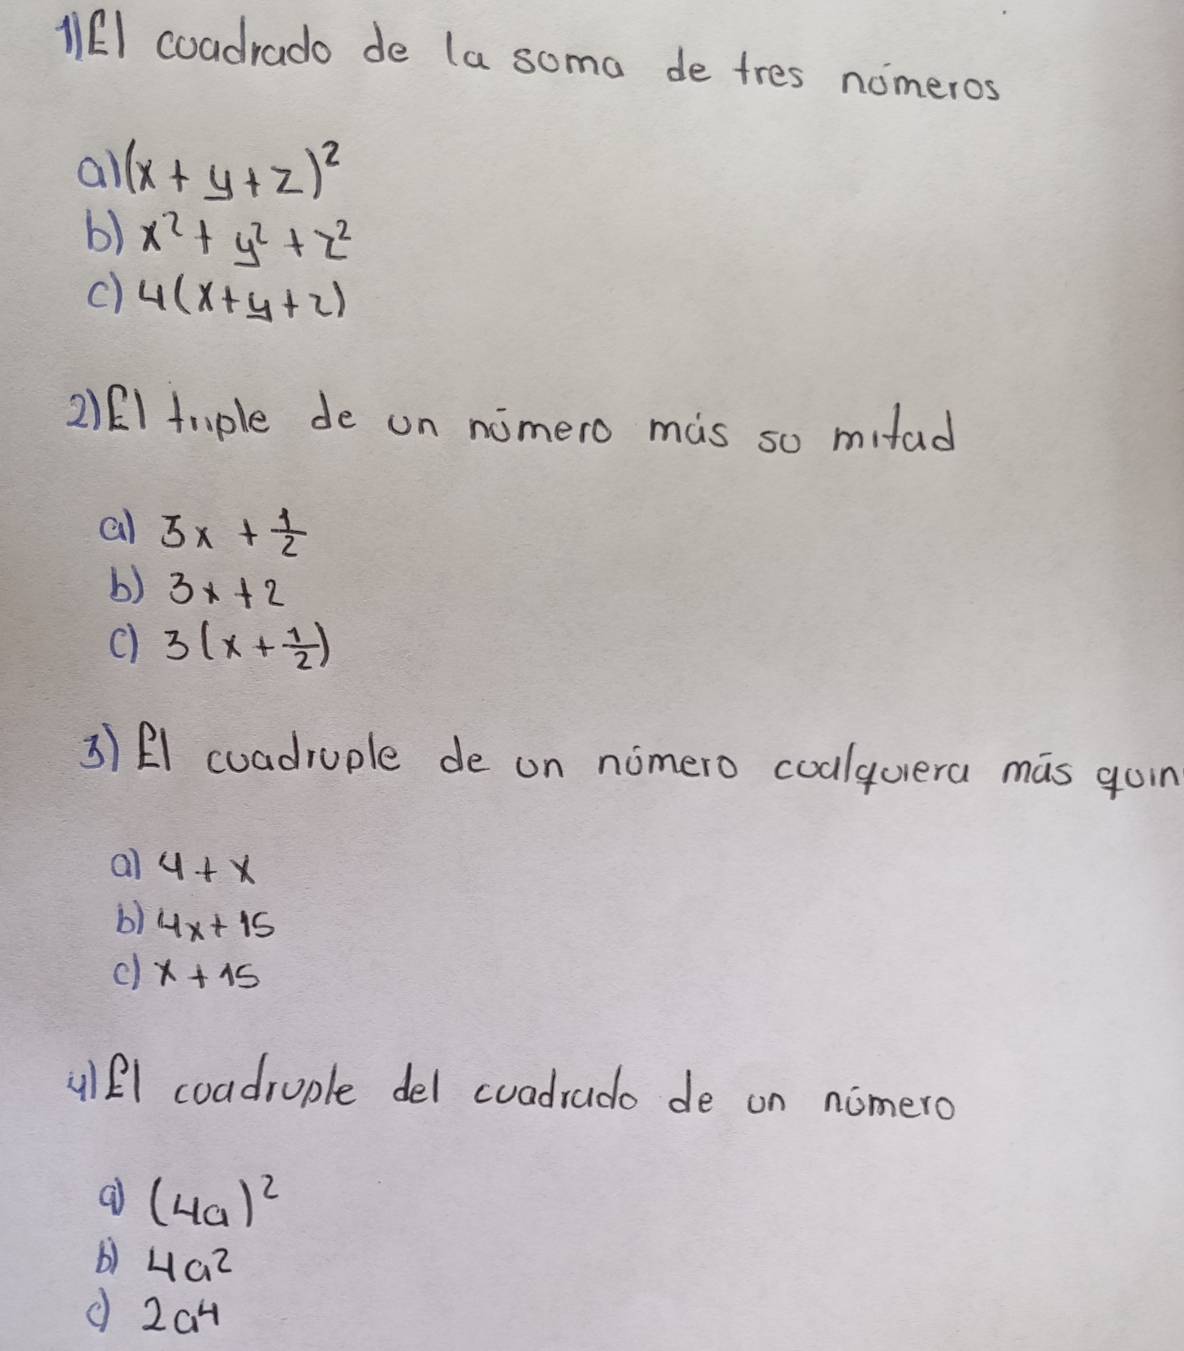 1) El cuadrado de la suma de tres números
a) (x + y + z)²
b) x² + y² + z²
c) 4(x + y + z)
2) El triple de un número más su mitad
a) 3x + 1/2
b) 3x + 2
c) 3(x + 1/2)
3) El cuadruple de un número cualquiera más quin
a) 4 + x
b) 4x + 15
c) x + 15
4) El cuadruple del cuadrado de un número
a) (4a)²
b) 4a²
c) 2a⁴